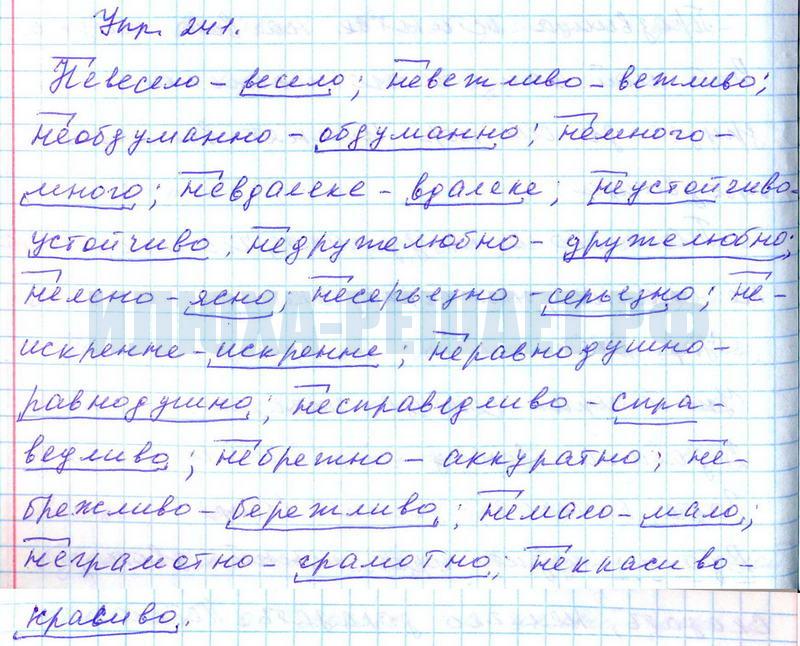 Упр. 241.
Невесело – весело; невежливо – вежливо;
необдуманно – обдуманно; немного –
много; невдалеке – вдалеке; неустойчиво –
устойчиво; недружелюбно – дружелюбно;
неясно – ясно; несерьезно – серьезно; не-
искренне – искренне; неравнодушно –
равнодушно; несправедливо – спра-
ведливо; небрежно – аккуратно; не-
брежливо – бережливо; немало – мало;
неграмотно – грамотно; некрасиво –
красиво.
ИЛЮХА-РЕШАЕТ.РФ